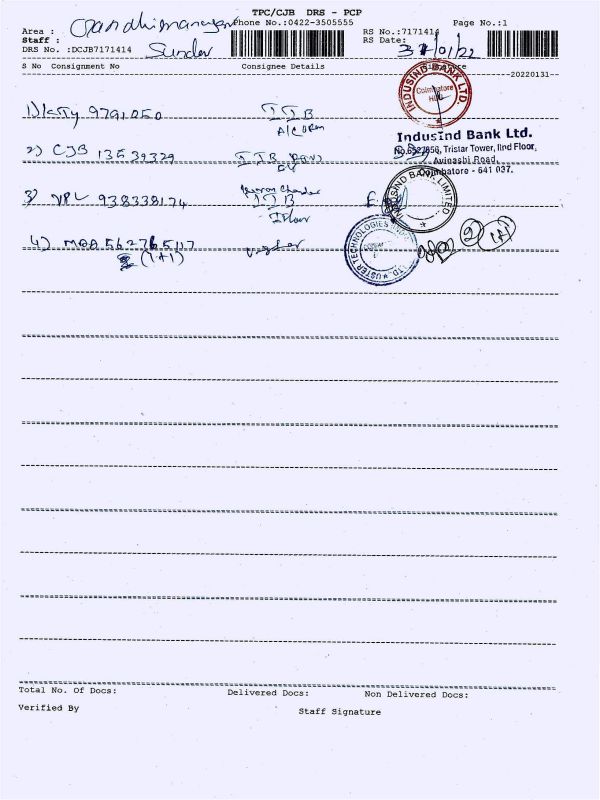 TPC/CJB DRS - PCP
Area : Gandhimanagar Phone No.:0422-3505555 Page No.:1
Staff : Sunder RS No.:7171414
DRS No. :DCJB7171414 RS Date: 31/01/22
S No Consignment No Consignee Details
--20220131--
1) KTY 9791050 IIB
2) CJB 13539329 IIB
3) VPL 938338174 IIB
I Floor
4) MAA 562765117
(1+1)
INDUSIND BANK LTD.
Coimbatore
IndusInd Bank Ltd.
Tristar Tower, IInd Floor,
Avinashi Road,
Coimbatore - 641 037.
INDUSIND BANK LIMITED
USTER TECHNOLOGIES
2 1+1
Total No. Of Docs: Delivered Docs: Non Delivered Docs:
Verified By Staff Signature